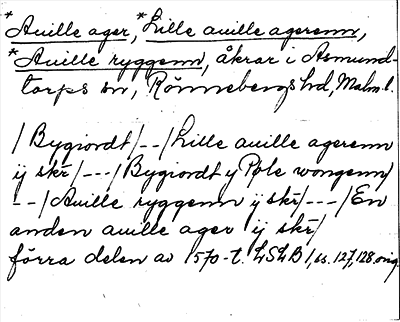 *Auille ager, *Lille auille agerenn,
*Auille ryggenn, åkrar i Asmund-
torps sn, Rönnebergs hd, Malm. l.
/Bygiordt/--/Lille auille agerenn
ij skr/---/Bygiordt y Pøle wongenn/
--/Auille ryggenn ij skr/---/En
anden auille ager ij skr/
förra delen av 1570-t. LSLB 1, ss. 127, 128 orig.